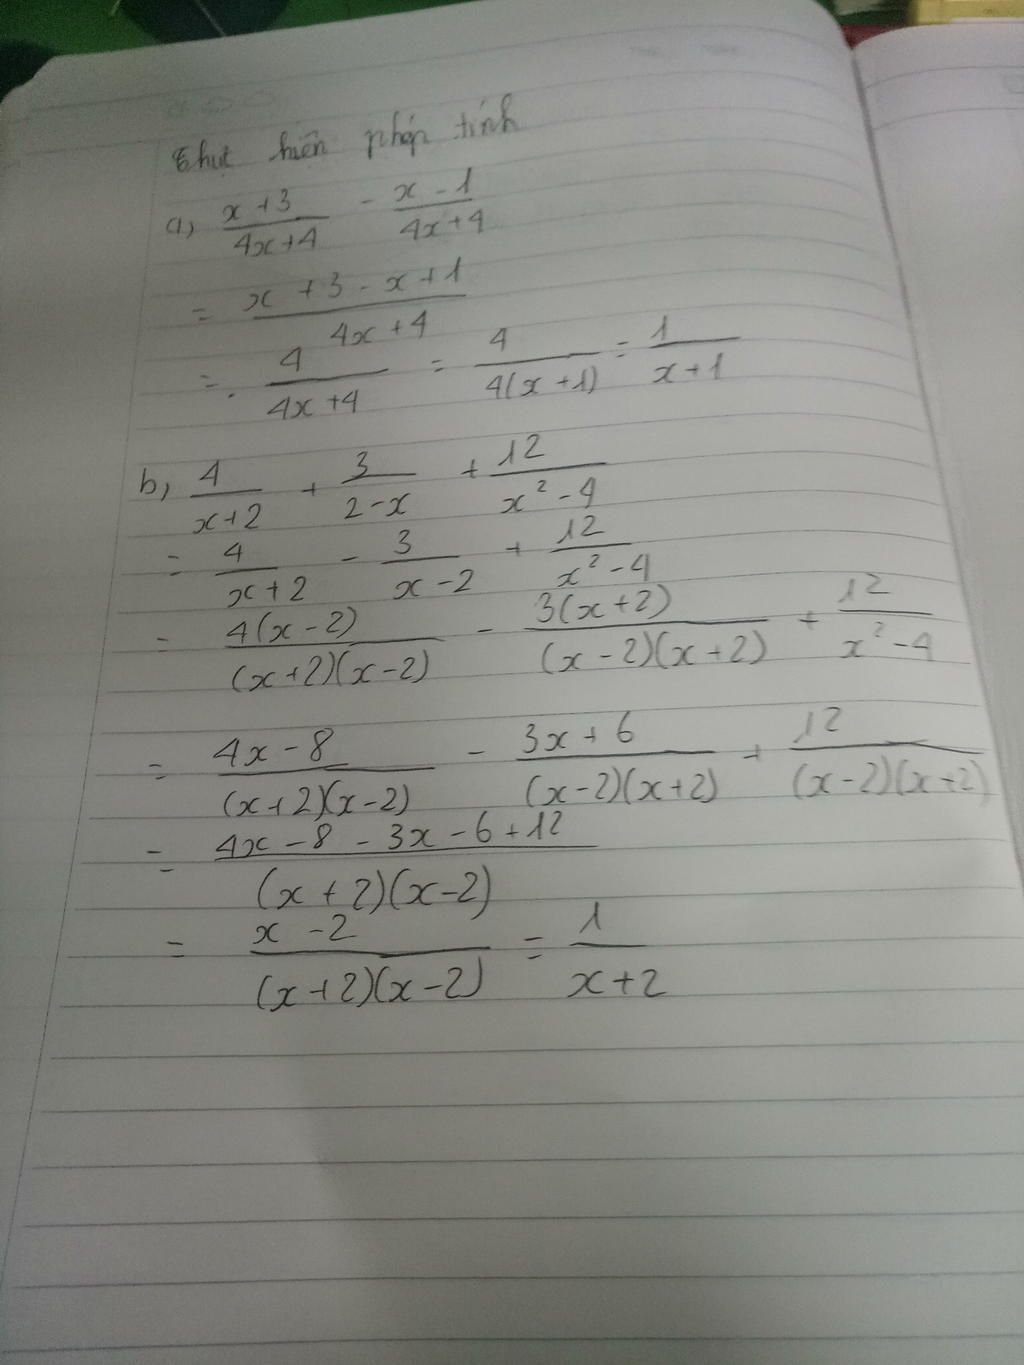 Thực hiện phép tính
a, (x+3)/(4x+4) - (x-1)/(4x+4)
= (x+3-x+1)/(4x+4)
= 4/(4x+4) = 4/(4(x+1)) = 1/(x+1)
b, 4/(x+2) + 3/(2-x) + 12/(x²-4)
= 4/(x+2) - 3/(x-2) + 12/(x²-4)
= 4(x-2)/((x+2)(x-2)) - 3(x+2)/((x-2)(x+2)) + 12/(x²-4)
= (4x-8)/((x+2)(x-2)) - (3x+6)/((x-2)(x+2)) + 12/((x-2)(x+2))
= (4x-8-3x-6+12)/((x+2)(x-2))
= (x-2)/((x+2)(x-2)) = 1/(x+2)